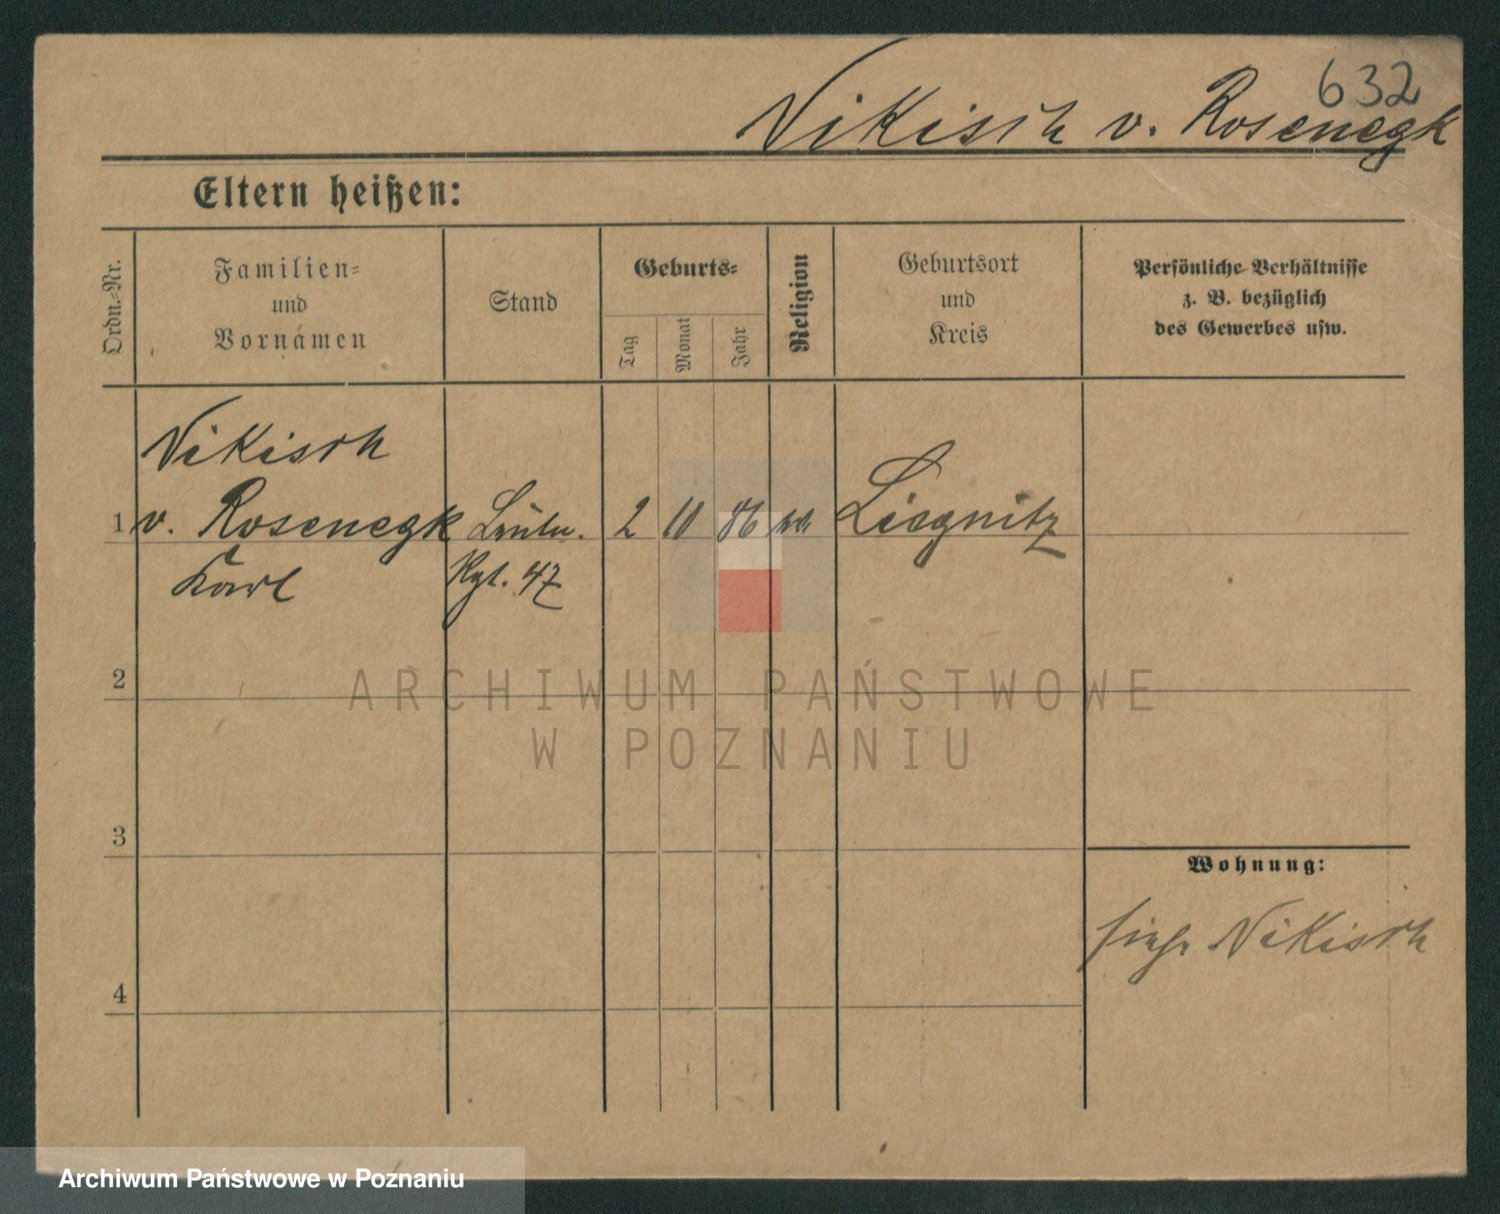 632
Nikisch v. Rosenegk
Eltern heißen:
Ordn.-Nr.
Familien-
und
Vornamen
Stand
Geburts-
Tag
Monat
Jahr
Religion
Geburtsort
und
Kreis
Persönliche Verhältnisse
z. B. bezüglich
des Gewerbes usw.
Nikisch
1 v. Rosenegk Leutn. 2 10 86 Liegnitz
Karl Rgt. 47
2
ARCHIWUM PAŃSTWOWE
W POZNANIU
3
Wohnung:
siehe Nikisch
4
Archiwum Państwowe w Poznaniu